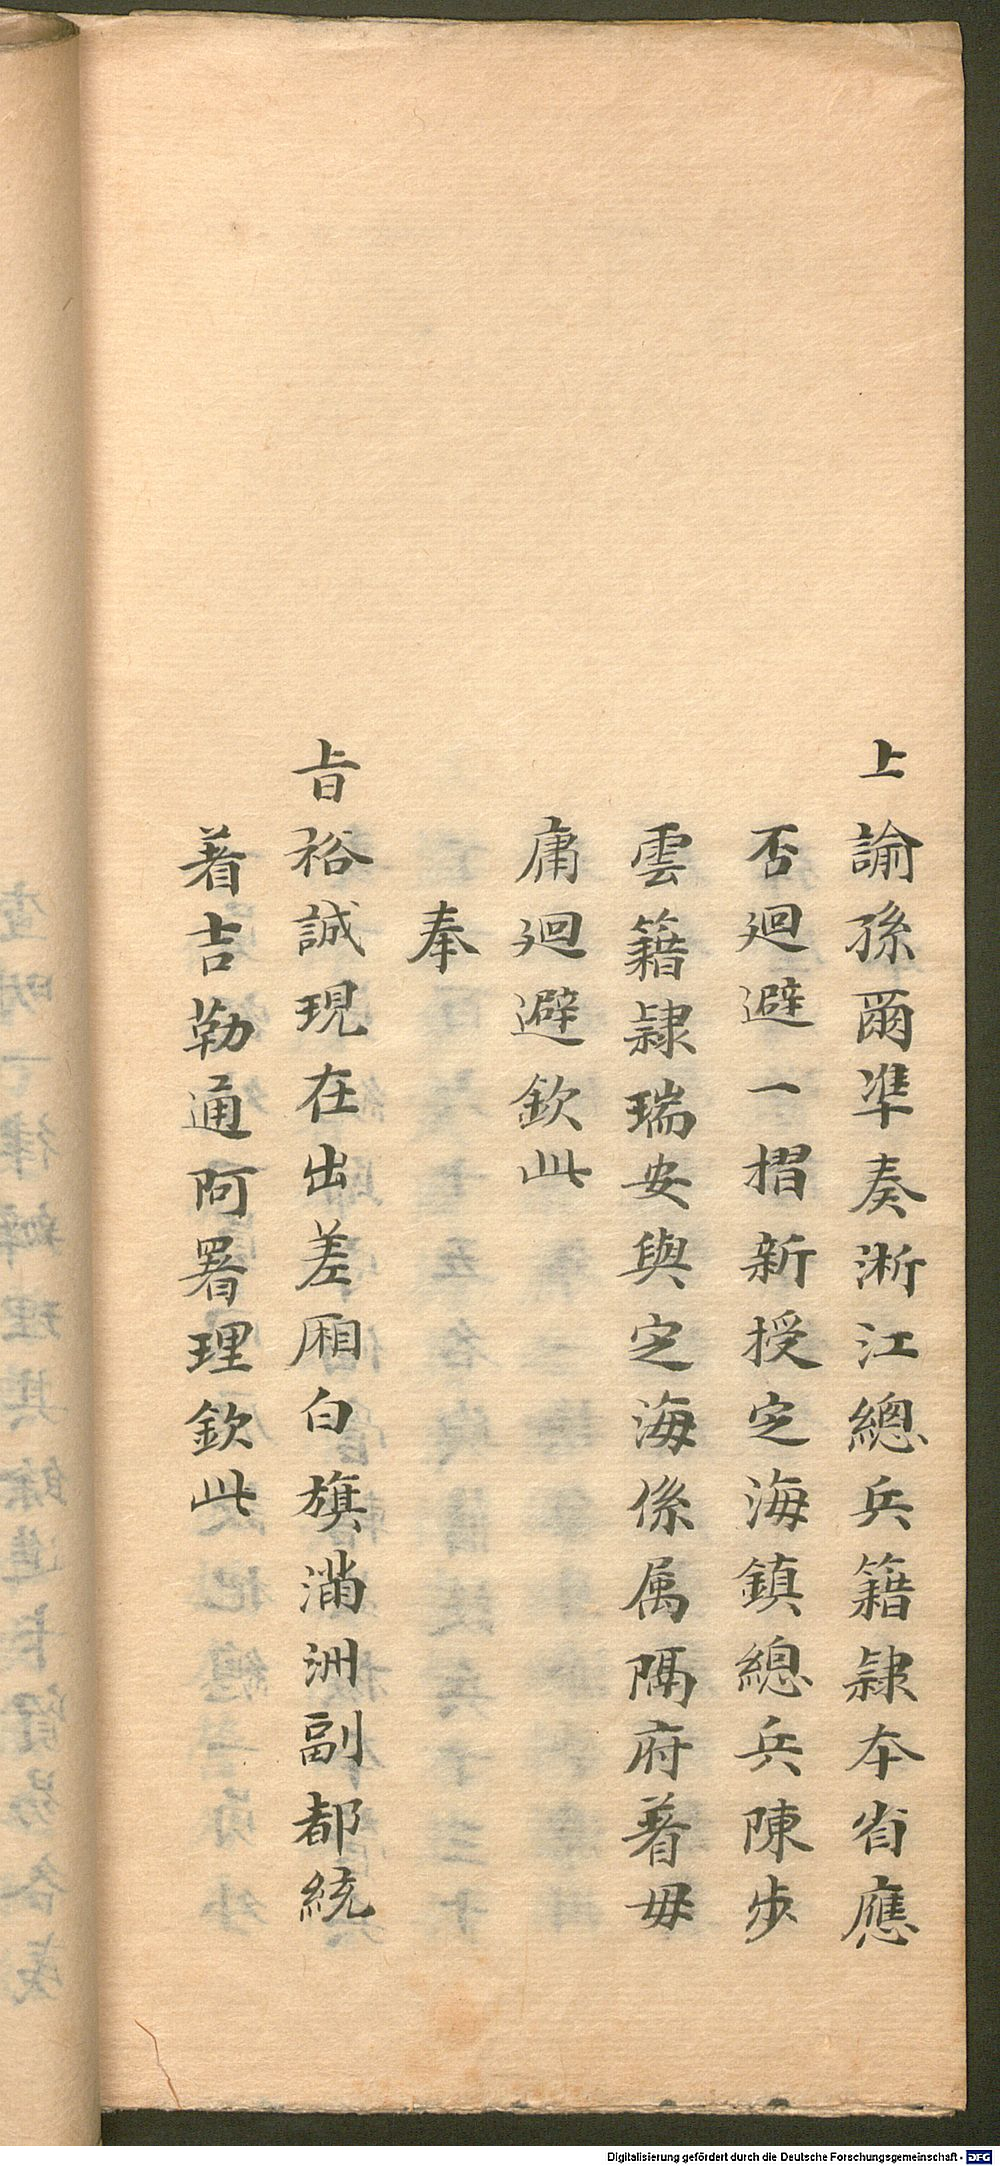 上諭孫爾凖奏淅江總兵籍隷本省應
否廻避一摺新授定海鎮總兵陳步
雲籍隷瑞安與定海係属隔府著毋
庸廻避欽此
奉
旨裕誠現在出差厢白旗滿洲副都統
著吉勒通阿署理欽此
Digitalisierung gefördert durch die Deutsche Forschungsgemeinschaft - DFG